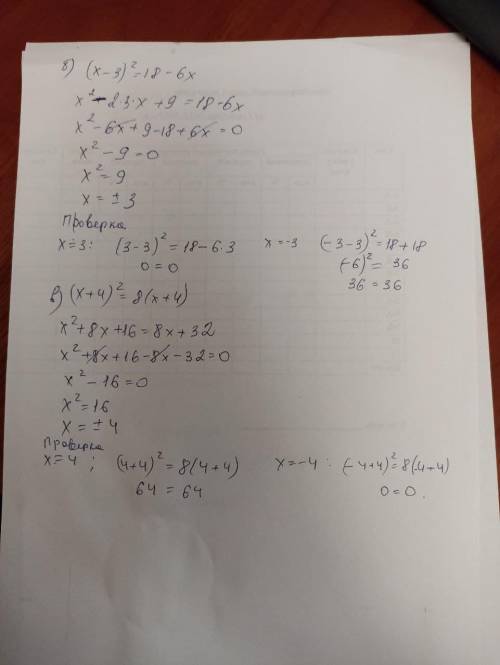 б) (x-3)² = 18 - 6x
x² - 2·3·x + 9 = 18 - 6x
x² - 6x + 9 - 18 + 6x = 0
x² - 9 = 0
x² = 9
x = ± 3
Проверка
x = 3: (3-3)² = 18 - 6·3 x = -3 (-3-3)² = 18 + 18
0 = 0 (-6)² = 36
36 = 36
в) (x+4)² = 8(x+4)
x² + 8x + 16 = 8x + 32
x² + 8x + 16 - 8x - 32 = 0
x² - 16 = 0
x² = 16
x = ± 4
Проверка
x = 4 ; (4+4)² = 8(4+4) x = -4 : (-4+4)² = 8(-4+4)
64 = 64 0 = 0.